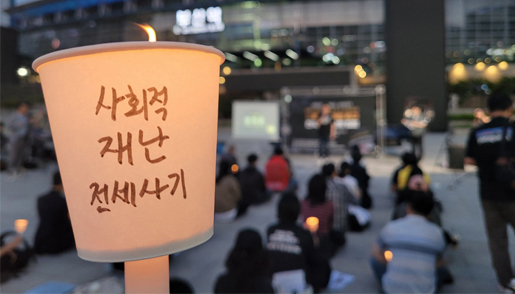 사회적
재난
전세사기